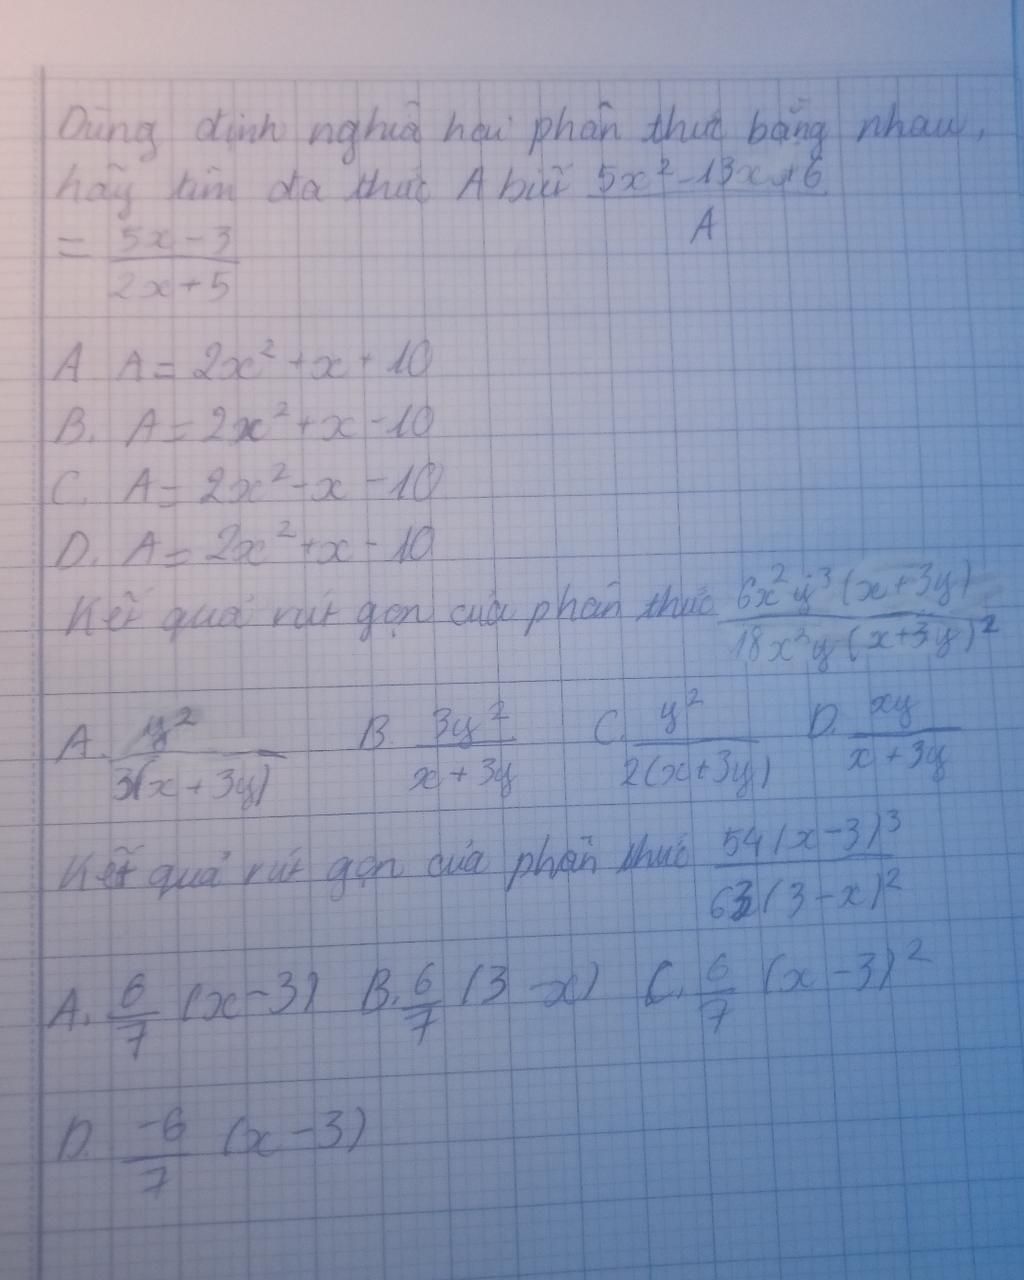 Dùng định nghĩa hai phân thức bằng nhau,
hãy tìm đa thức A biết \frac{5x^2-13x+6}{A}
= \frac{5x-3}{2x+5}
A A = 2x² + x + 10
B. A = 2x² + x - 10
C. A = 2x² - x - 10
D. A = 2x² + x - 10
Kết quả rút gọn của phân thức \frac{6x^2y^3(x+3y)}{18x^2y(x+3y)^2}
A. \frac{y^2}{3(x+3y)} B. \frac{3y^2}{x+3y} C. \frac{y^2}{2(x+3y)} D. \frac{xy}{x+3y}
Kết quả rút gọn của phân thức \frac{54(x-3)^3}{63(3-x)^2}
A. \frac{6}{7} (x-3) B. \frac{6}{7} (3-x) C. \frac{6}{7} (x-3)²
D. \frac{-6}{7} (x-3)